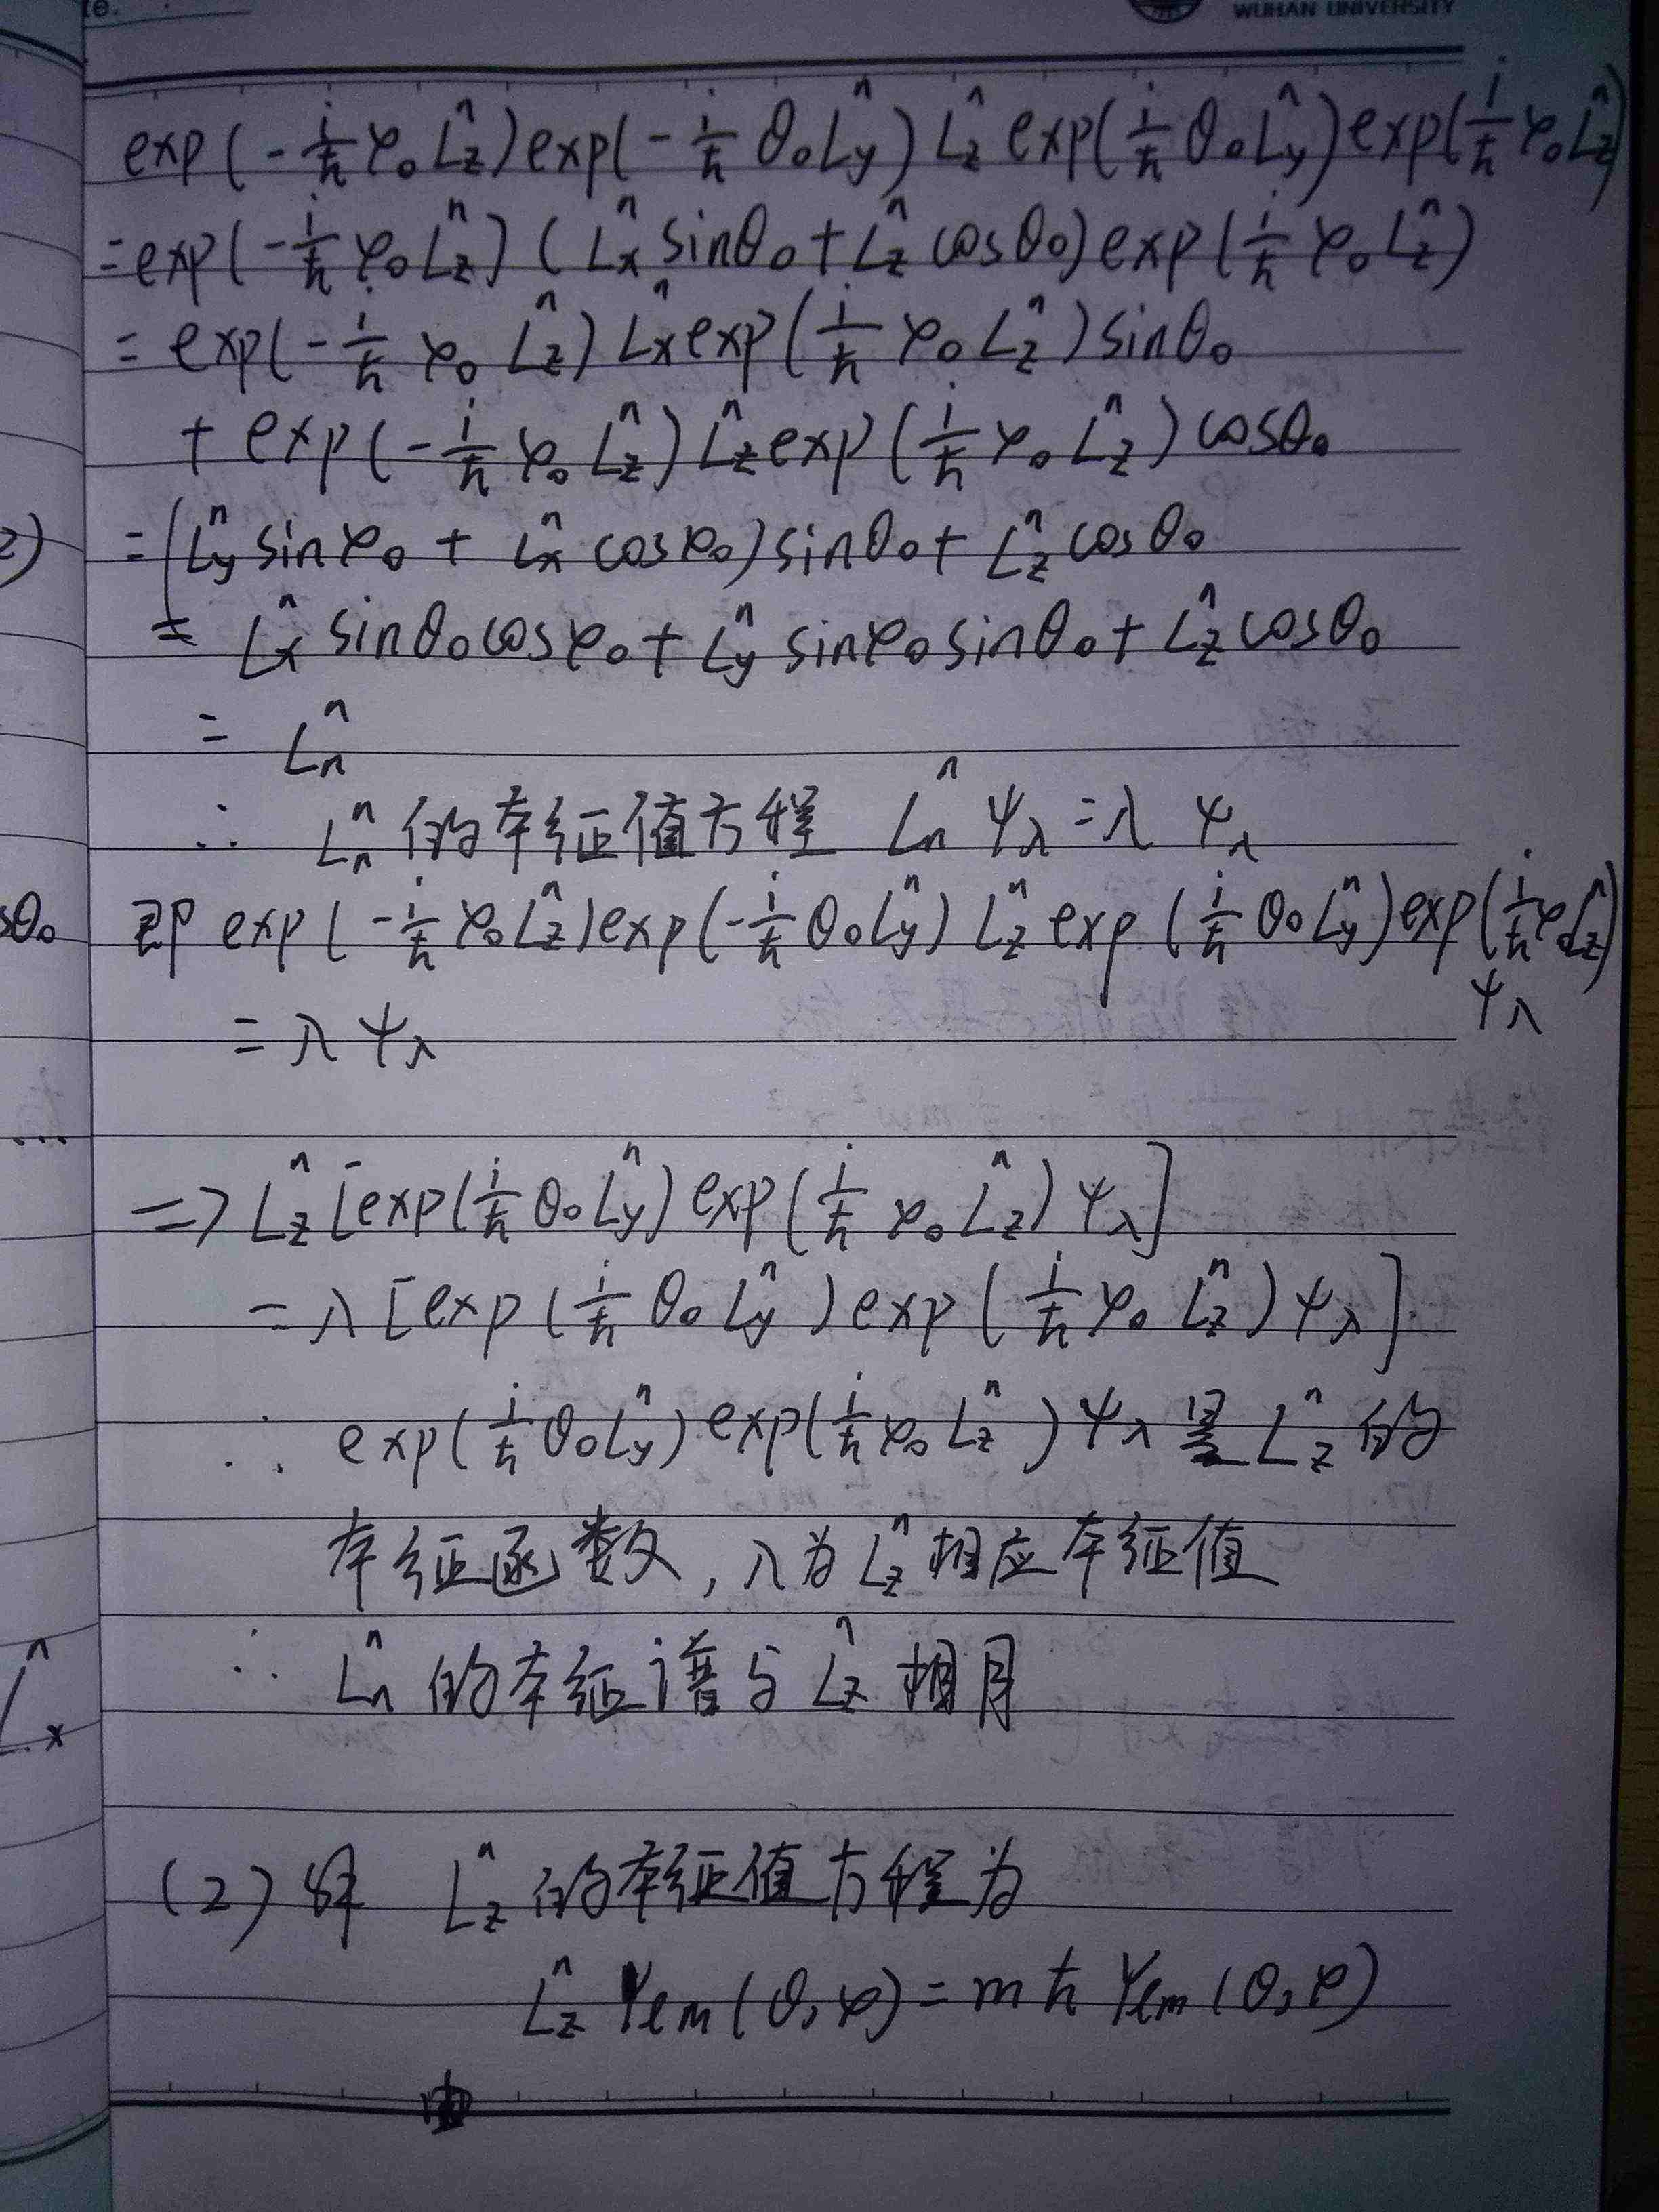 te.
WUHAN UNIVERSITY
exp(-i/ħ φ₀L̂z)exp(-i/ħ θ₀L̂y) L̂z exp(i/ħ θ₀L̂y)exp(i/ħ φ₀L̂z)
=exp(-i/ħ φ₀L̂z)(L̂x sinθ₀+L̂z cosθ₀)exp(i/ħ φ₀L̂z)
=exp(-i/ħ φ₀L̂z)L̂x exp(i/ħ φ₀L̂z)sinθ₀
+exp(-i/ħ φ₀L̂z)L̂z exp(i/ħ φ₀L̂z)cosθ₀
2) =(L̂y sinφ₀+L̂x cosφ₀)sinθ₀+L̂z cosθ₀
=L̂x sinθ₀cosφ₀+L̂y sinφ₀sinθ₀+L̂z cosθ₀
=L̂n
∴ L̂n的本征值方程 L̂nψλ=λψλ
sθ₀ 即 exp(-i/ħ φ₀L̂z)exp(-i/ħ θ₀L̂y) L̂z exp(i/ħ θ₀L̂y)exp(i/ħ φ₀L̂z)
ψλ
=λψλ
...
=> L̂z[exp(i/ħ θ₀L̂y)exp(i/ħ φ₀L̂z)ψλ]
=λ[exp(i/ħ θ₀L̂y)exp(i/ħ φ₀L̂z)ψλ]
∴ exp(i/ħ θ₀L̂y)exp(i/ħ φ₀L̂z)ψλ是L̂z的
本征函数,λ为L̂z相应本征值
∴ L̂n的本征谱与L̂z相同
L̂x
(2)解 L̂z的本征值方程为
L̂z Yℓm(θ,φ)=mħ Yℓm(θ,φ)